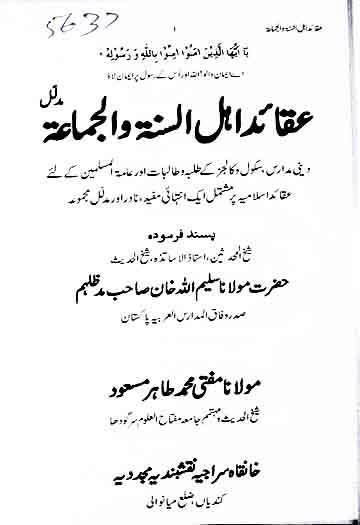 5637
۱
عقائد اهل السنة والجماعة
یٰۤاَیُّهَا الَّذِیْنَ اٰمَنُوْۤا اٰمِنُوْا بِاللّٰهِ وَ رَسُوْلِهٖ
اے ایمان والو! اللہ اور اُس کے رسول پر ایمان لاؤ
عقائد اهل السنة والجماعة مدلل
دینی مدارس، سکول و کالجز کے طلبہ و طالبات اور عامۃ المسلمین کے لئے
عقائد اسلامیہ پر مشتمل ایک انتہائی مفید، نادر اور مدلّل مجموعہ
پسند فرمودہ
شیخ المحدثین، استاذ الاساتذہ، شیخ الحدیث
حضرت مولانا سلیم اللہ خان صاحب مدظلہم
صدر وفاق المدارس العربیہ پاکستان
مولانا مفتی محمد طاہر مسعود
شیخ الحدیث و مہتمم جامعہ مفتاح العلوم سرگودھا
خانقاہ سراجیہ نقشبندیہ مجددیہ
کندیاں، ضلع میانوالی